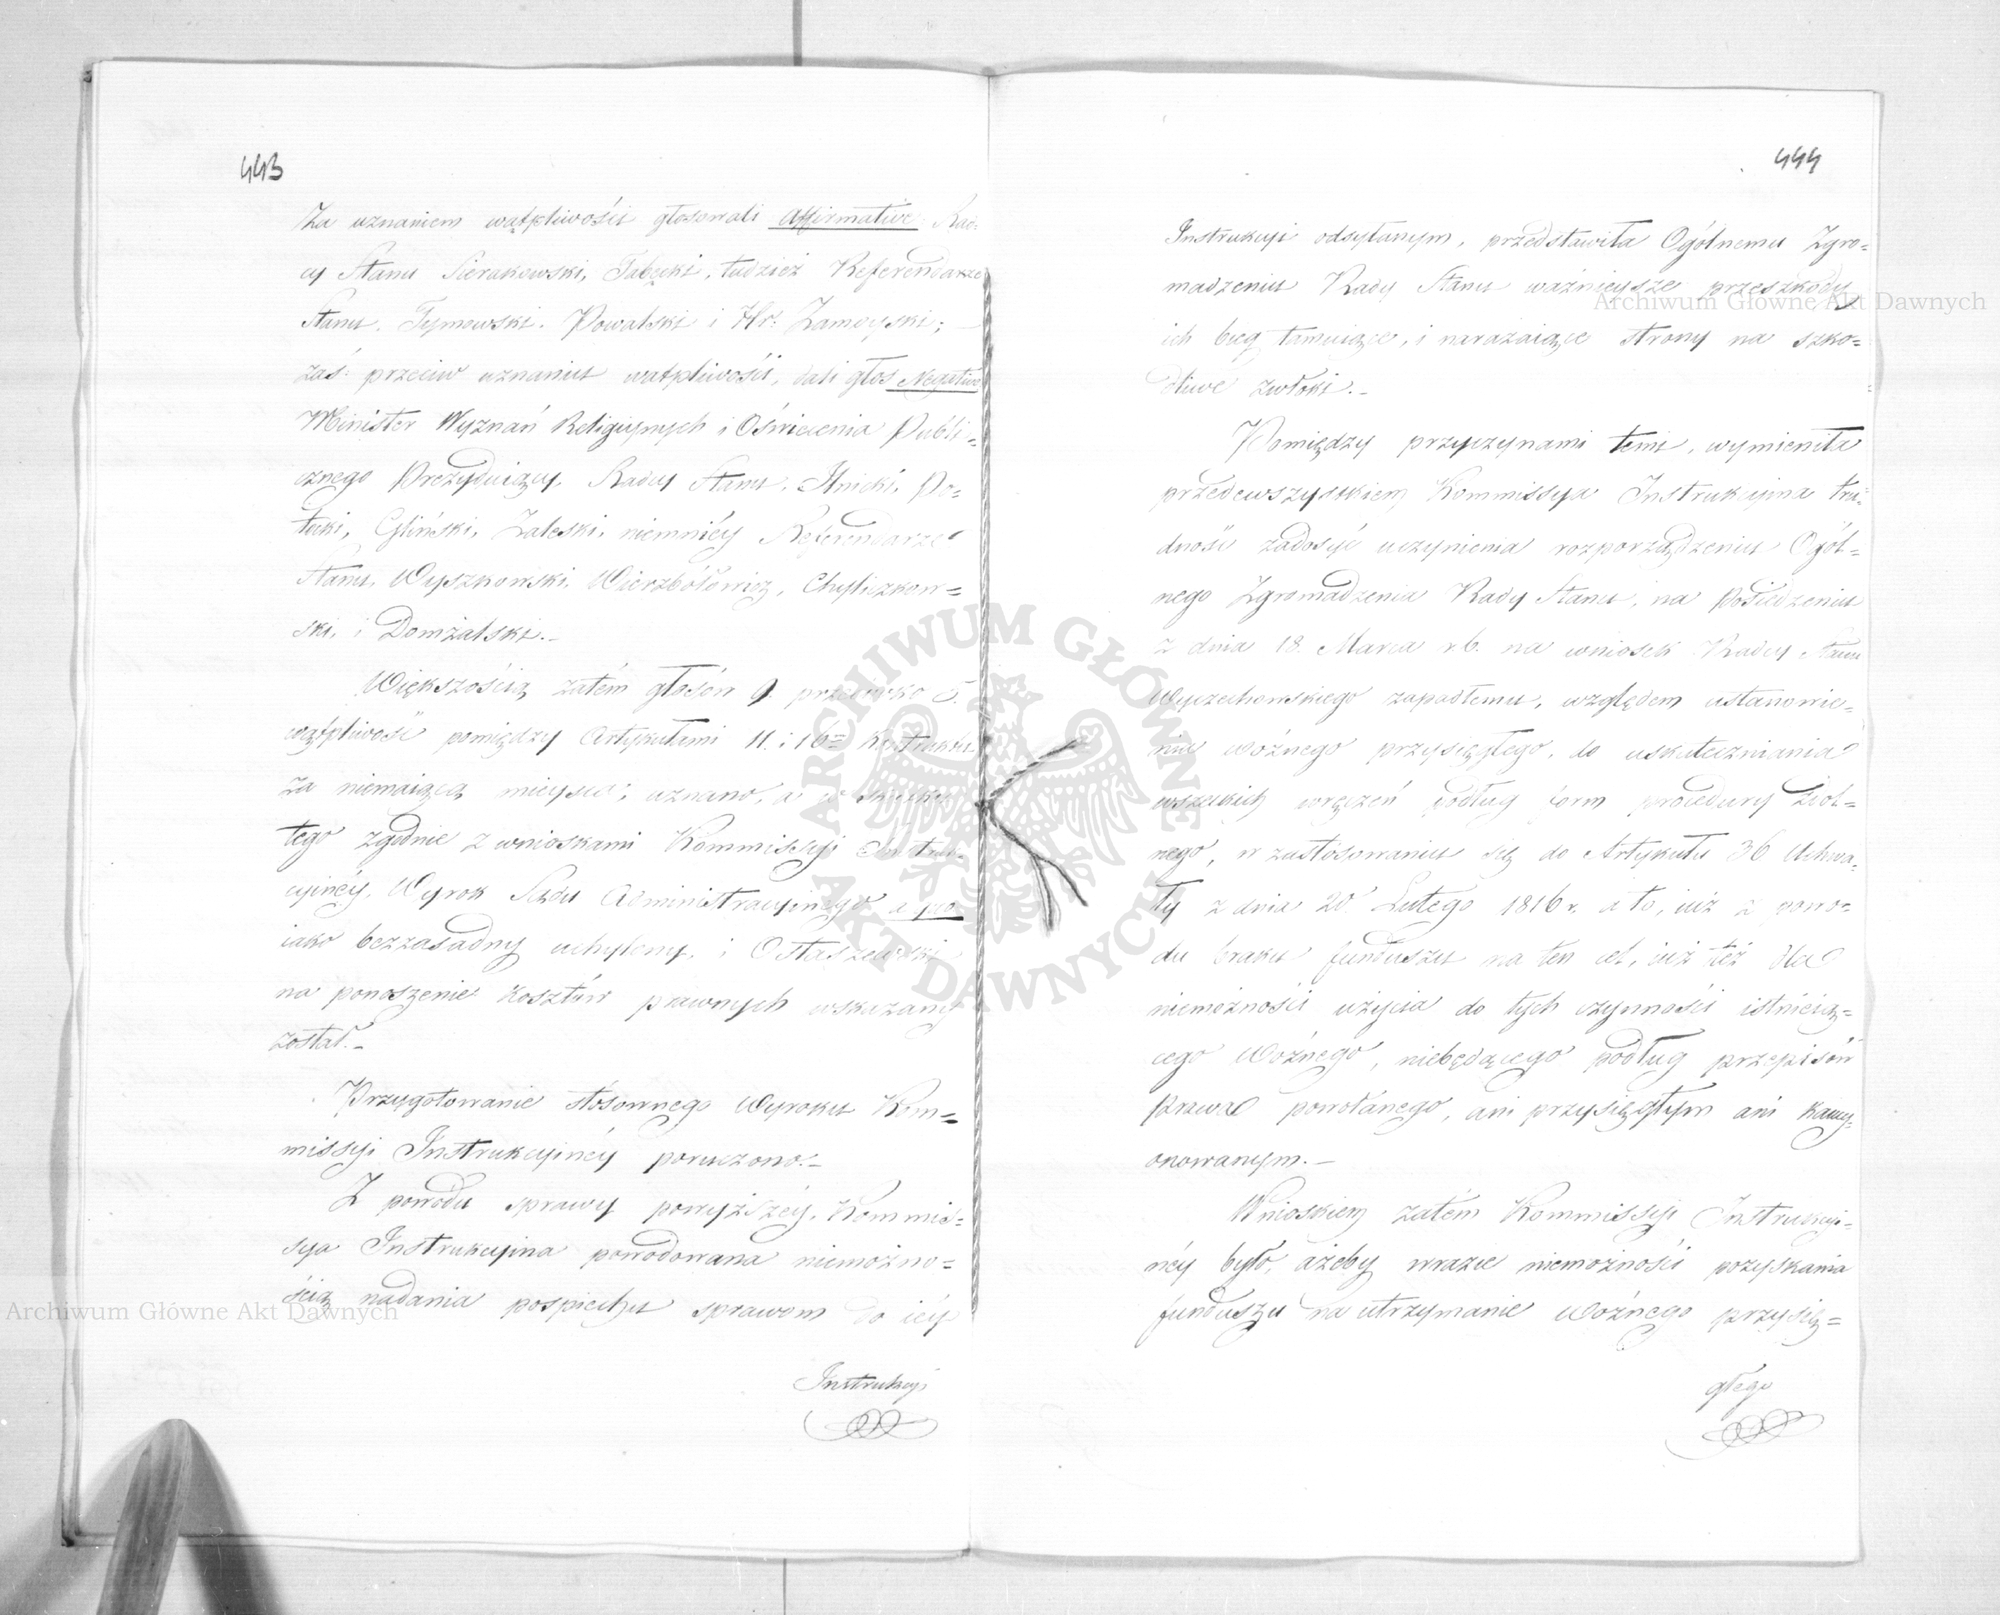 443
Za uznaniem wątpliwości głosowali Affirmative Rad-
cy Stanu Sierakowski, Tabęcki, tudzież Referendarze
Stanu, Tymowski, Powalski i Hr: Zamoyski; —
zaś przeciw uznaniu wątpliwości, dali głos Negative
Minister Wyznań Religijnych i Oświecenia Publi-
cznego Prezydujący, Radcy Stanu, Ilnicki, Po-
tocki, Gliński, Zaleski, niemniéy Referendarze
Stanu, Wyszkowski, Wierzbółowicz, Chyliczkow-
ski, i Domżalski.—
Większością zatém głosów 9. przeciwko 5.
wątpliwość pomiędzy Artykułami 11. i 16
za niemaiącą mieysca, uznano, a w skutku
tego zgodnie z wnioskami Kommissyi Instruk-
cyinéy, Wyrok Sądu Administracyinego a quo
iako bezzasadny uchylony, i Ostaszewski
na ponoszenie kosztów prawnych wskazany
został.—
Przygotowanie stósownego Wyroku Kom-
missyi Instrukcyinéy poruczono.—
Z powodu sprawy powyższéy, Kommis-
sya Instrukcyina powodowana niemożno-
ścią nadania pospiechu sprawom do iéy
Instrukcyi
444
Instrukcyi odsyłanym, przedstawiła Ogólnemu Zgro-
madzeniu Rady Stanu ważnieysze przeszkody
ich bieg tamuiące, i narażaiące strony na szko-
dliwe zwłoki.—
Pomiędzy przyczynami temi, wymieniła
przedewszystkiem Kommissya Instrukcyina tru-
dność zadosyć uczynienia rozporządzeniu Ogól-
nego Zgromadzenia Rady Stanu, na Posiedzeniu
z dnia 18. Marca r b. na wniosek Radcy Stanu
Wyczechowskiego zapadłemu, względem ustanowie-
nia woźnego przysięgłego, do uskuteczniania
wszelkich wręczeń podług form procedury Ciół-
nego, w zastósowaniu się do Artykułu 36 Uchwa-
ły z dnia 20. Lutego 1816 r. a to, iuż z powo-
du braku funduszu na ten cel, iuż też dla
niemożności użycia do tych czynności istnieią-
cego Woźnego, niebędącego podług przepisów
Prawa powołanego, ani przysięgłym ani kaucy-
onowanym.—
Wnioskiem zatém Kommissyi Instrukcyi-
néy było, ażeby wrazie niemożności pozyskania
funduszu na utrzymanie Woźnego przysię-
głego
Archiwum Główne Akt Dawnych
ARCHIWUM GŁÓWNE AKT DAWNYCH
Archiwum Główne Akt Dawnych